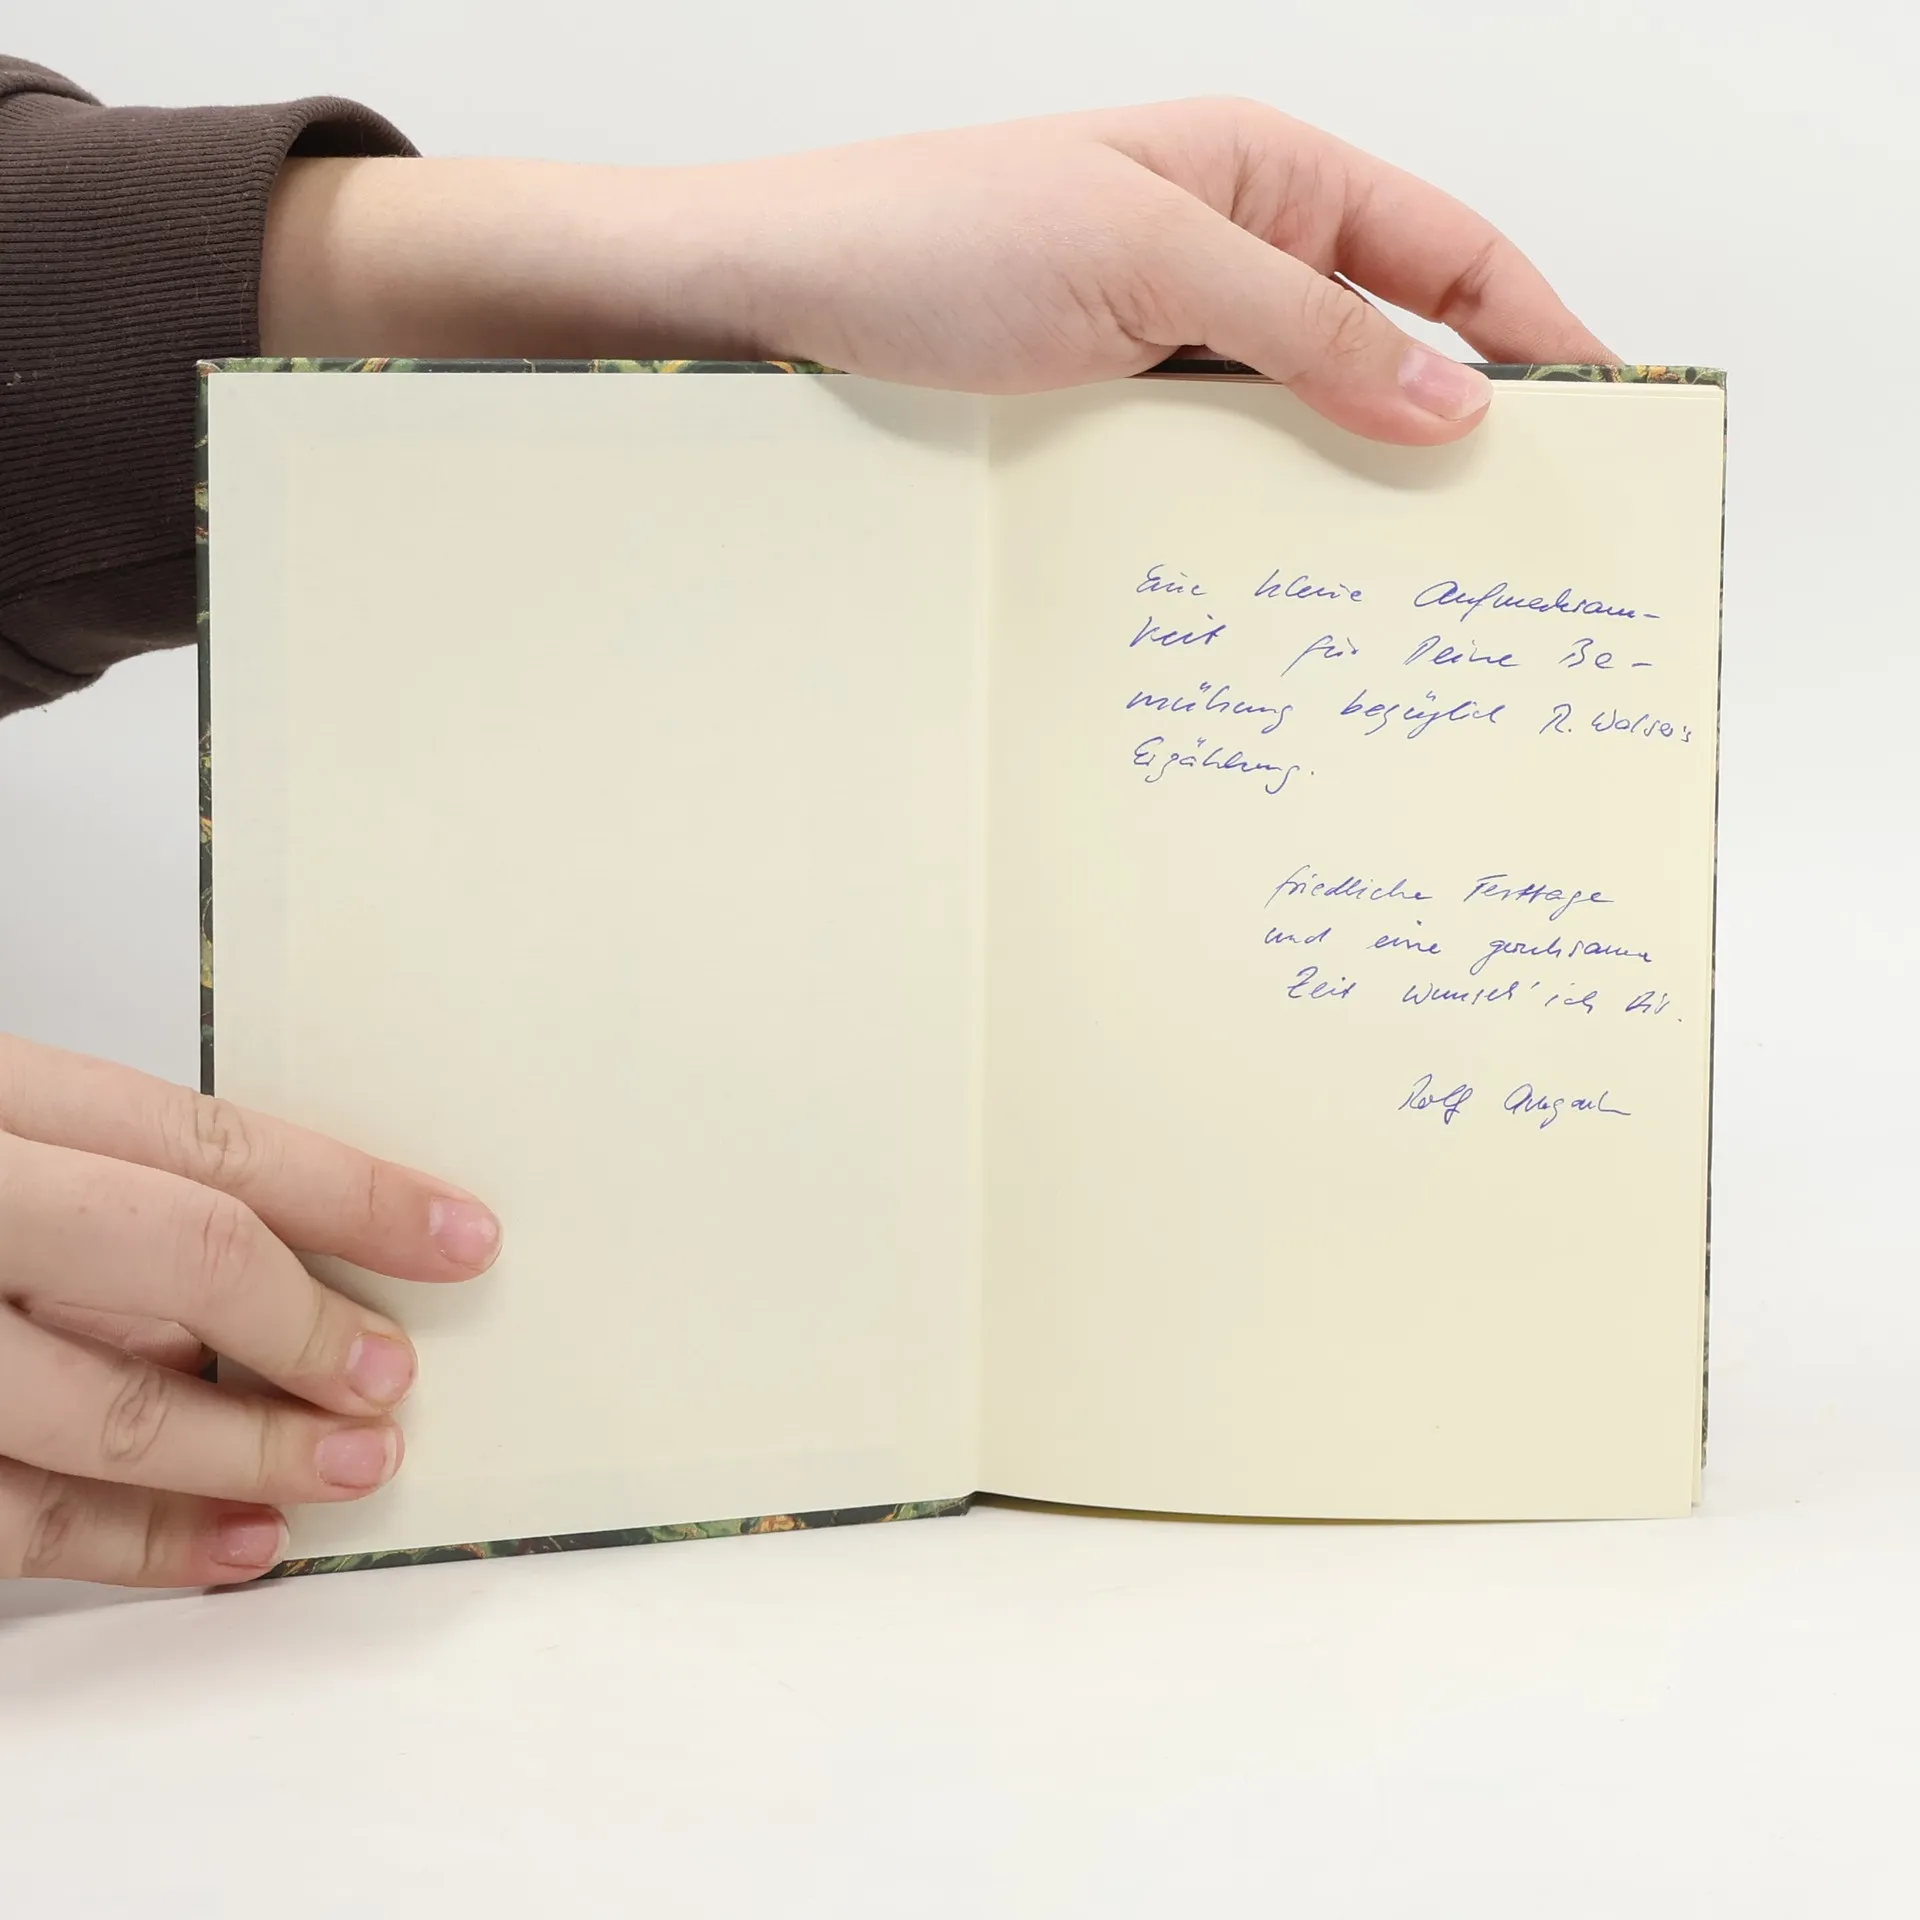 Eine kleine Aufmerksam-
keit für Deine Be-
mühung bezüglich R. Walser's
Erzählung.
friedliche Festtage
und eine geruhsame
Zeit wünsch' ich Dir.
Rolf